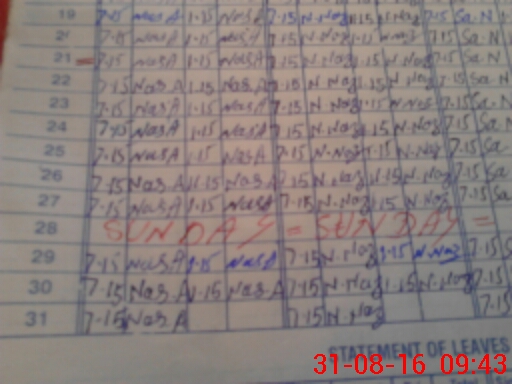 19 7.15 Nas A 1.15 Nas A 7.15 N.Naz 1.15 N.Naz 7.15 Sa.N
7.15 Nas A 1.15 Nas A 7.15 N.Naz 1.15 N.Naz 7.15 Sa.N
21 7.15 Nas A 1.15 Nas A 7.15 N.Naz 1.15 N.Naz 7.15 Sa.N
22 7.15 Nas A 1.15 Nas A 7.15 N.Naz 1.15 N.Naz 7.15 Sa.N
23 7.15 Nas A 1.15 Nas A 7.15 N.Naz 1.15 N.Naz 7.15 Sa.N
24 7.15 Nas A 1.15 Nas A 7.15 N.Naz 1.15 N.Naz 7.15 Sa.
25 7.15 Nas A 1.15 Nas A 7.15 N.Naz 1.15 N.Naz 7.15 Sa.
26 7.15 Nas A 1.15 Nas.A 7.15 N.Naz 1.15 N.Naz 7.15 Sa
27 7.15 Nas A 1.15 Nas A 7.15 N.Naz 1.15 N.Naz 7.15 Sa
28 SUNDAY = SUNDAY =
29 7.15 Nas A 1.15 Nas A 7.15 N.Naz 1.15 N.Naz 7.15 S
30 7.15 Nas.A 1.15 Nas.A 7.15 N.Naz 1.15 N.Naz 7.15 S
31 7.15 Nas A 7.15 N.Naz 7.15
STATEMENT OF LEAVES
31-08-16 09:43